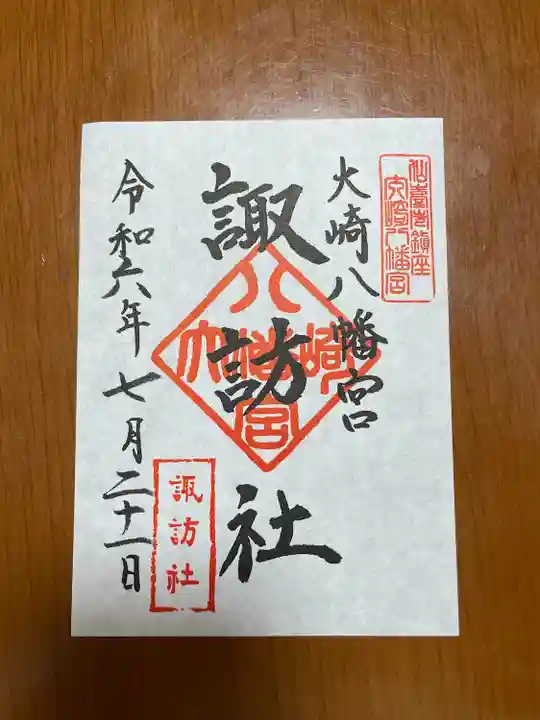 仙臺市鎮座
大崎八幡宮
大崎八幡宮
諏訪社
大崎八幡宮
諏訪社
令和六年七月二十一日